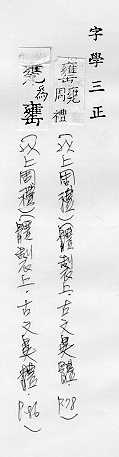 字學三正
周禮
(以上周禮)(體製上·古文異體·P.78)
為
(以上周禮)(體製上·古文異體·P.86)